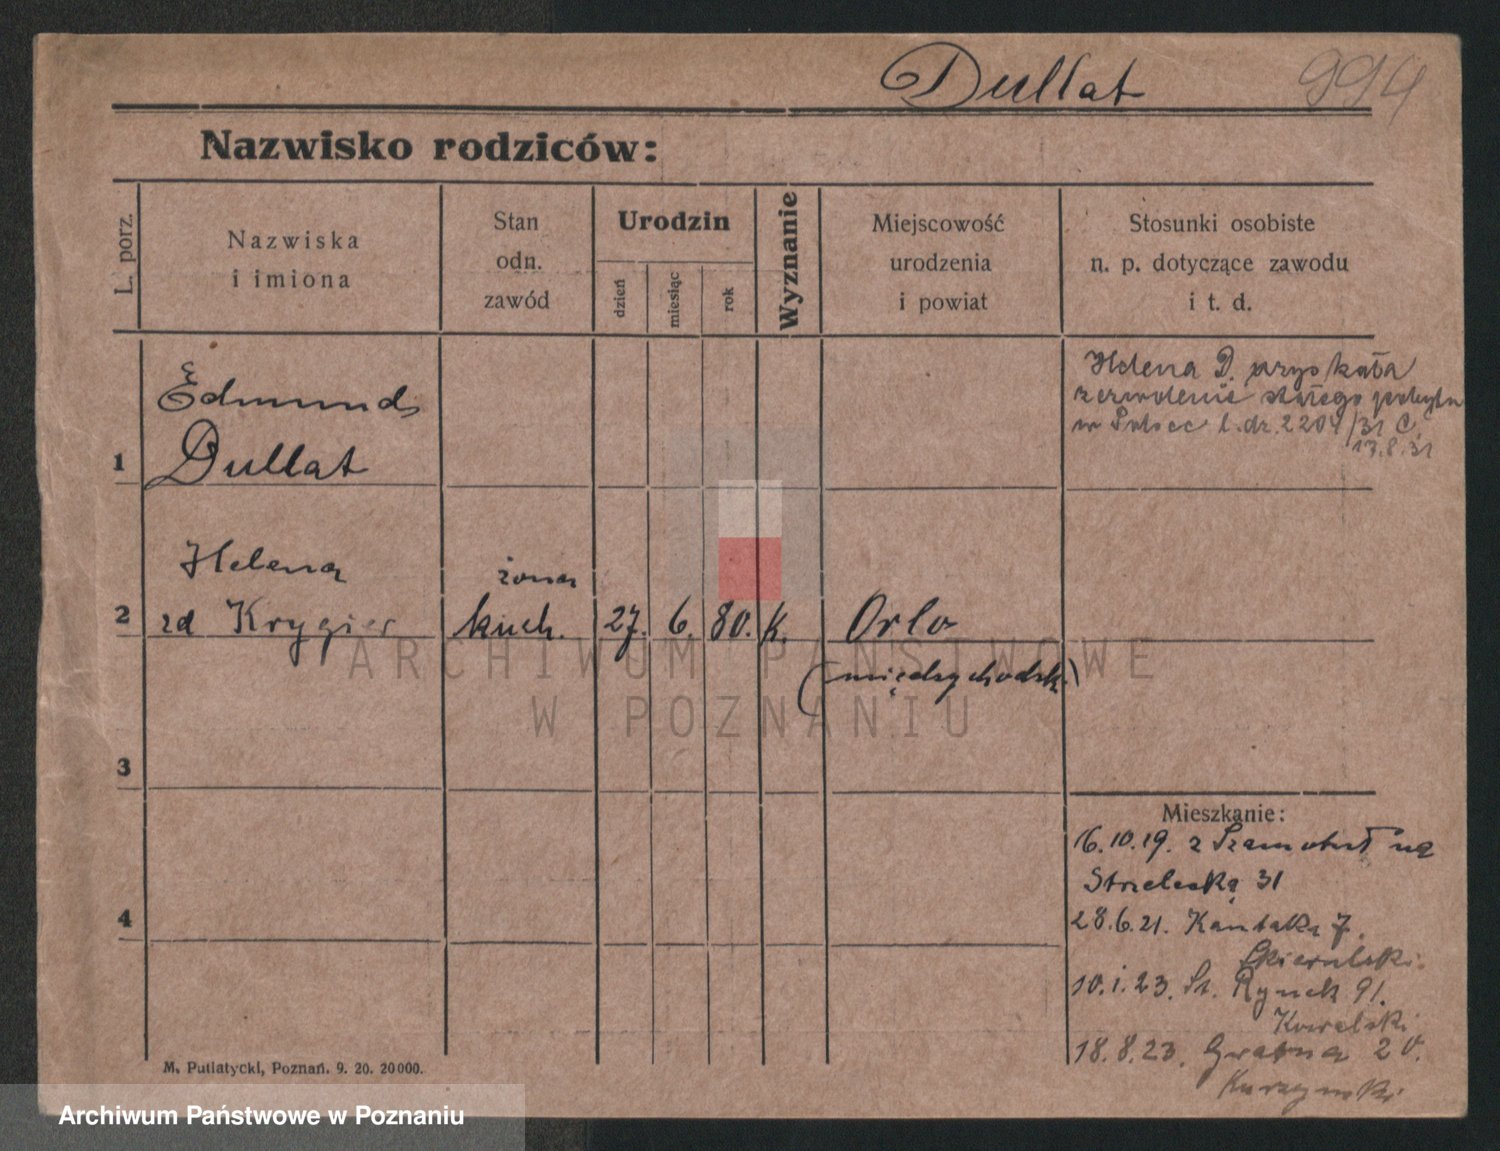 Dullat 994
Nazwisko rodziców:
L. porz.
Nazwiska
i imiona
Stan
odn.
zawód
Urodzin
dzień
miesiąc
rok
Wyznanie
Miejscowość
urodzenia
i powiat
Stosunki osobiste
n. p. dotyczące zawodu
i t. d.
1
Edmund
Dullat
Helena D. uzyskała
zezwolenie stałego pobytu
w Polsce l. dz. 2204/31 C.
17.8.31
2
Helena
zd Krygier
żona
kuch.
27. 6. 80. K.
Orlo
(międzychodzk.)
3
4
Mieszkanie:
16.10.19. z Szamotuł na
Strzelecką 31
28.6.21. Kantaka 7.
10.1.23. St. Rynek 91.
Kowalski
18.8.23. Gwarna 20.
M. Putiatycki, Poznań. 9. 20. 20000.
ARCHIWUM PAŃSTWOWE
W POZNANIU
Archiwum Państwowe w Poznaniu